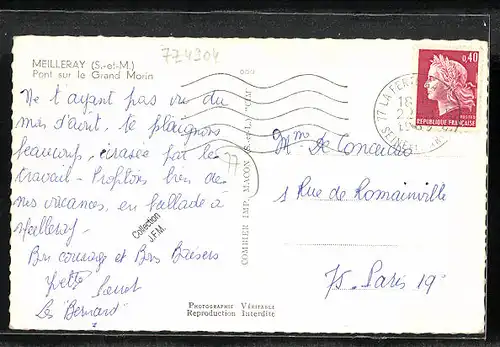 MEILLERAY (S.-et-M.)
Pont sur le Grand Morin
7Z4904
Ne t'ayant pas vu du
mois d'août, te plaignons
beaucoup, écrasée par le
travail - Profitons bien de
nos vacances, en ballade à
Meilleray -
Bon courage et Bons Baisers
Yvette
Les "Bernard"
Collection
J.F.M.
77
COMBIER IMP. MACON (S.-et-L.) "CIM"
0,40
POSTES
REPUBLIQUE FRANÇAISE
77 LA FER
18
SEINE
Mme De
1 Rue de Romainville
75 - Paris 19e
Photographie Véritable
Reproduction Interdite